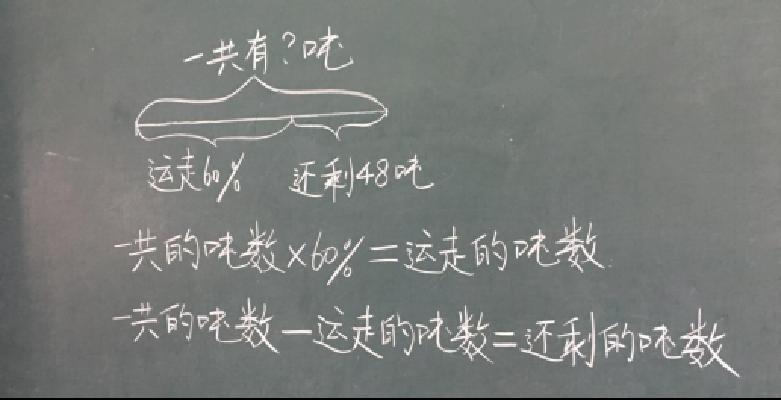 一共有?吨
运走60% 还剩48吨
一共的吨数×60%=运走的吨数
一共的吨数-运走的吨数=还剩的吨数